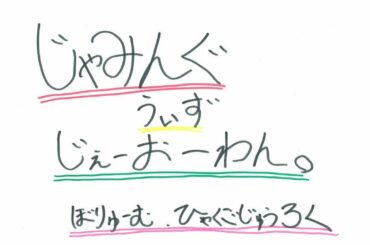 じゃみんぐ
うぃず
じぇーおーわん。
ぼりゅーむ.ひゃくごじゅうろく